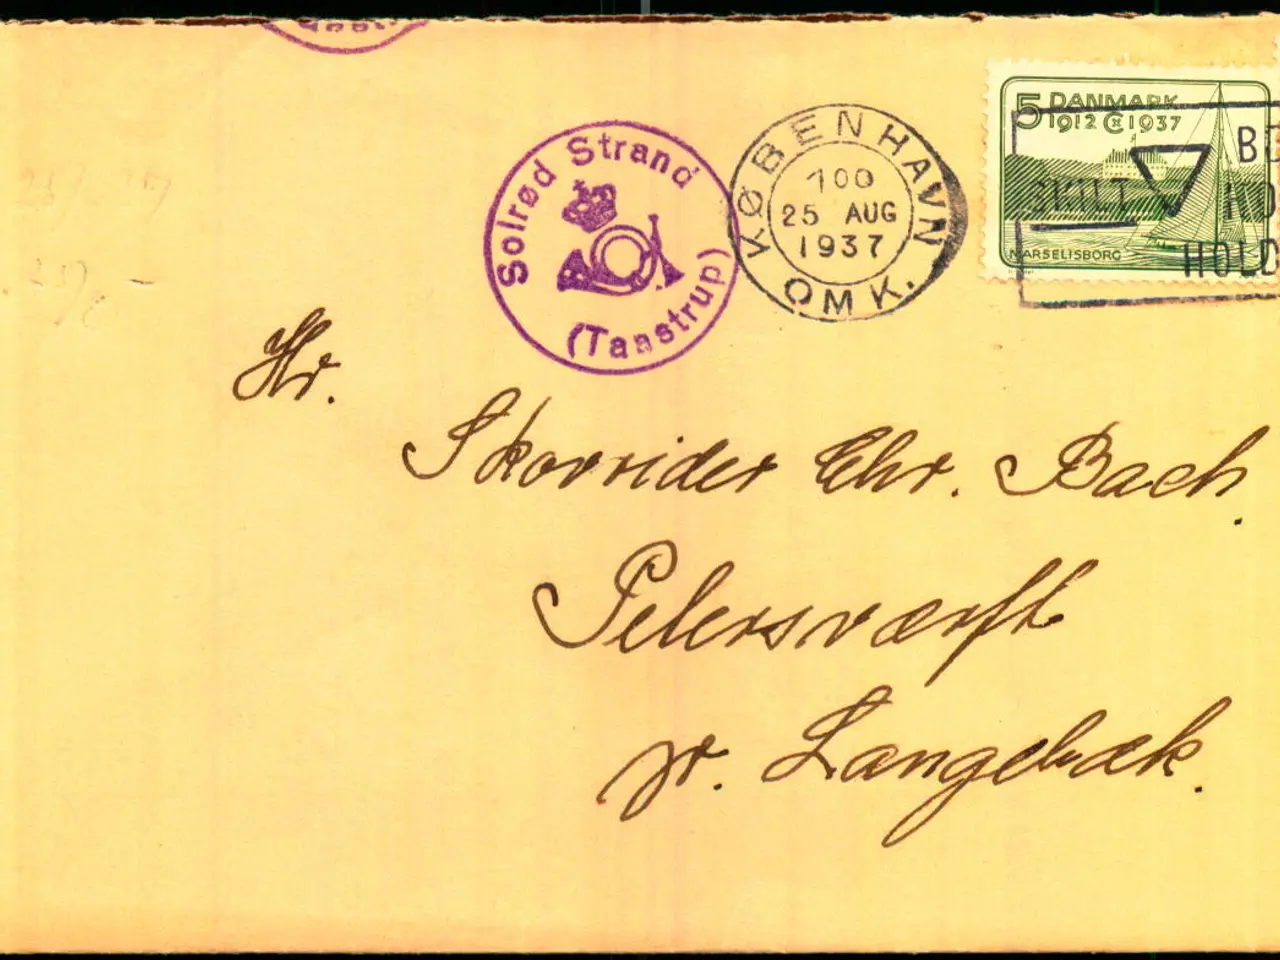 Solrød Strand
(Taastrup)
KØBENHAVN
100
25 AUG
1937
OMK.
5 DANMARK
1912 CX 1937
MARSELISBORG
SKILT
HOLD
Hr.
Skovrider Chr. Bach.
Petersværft
pr. Langebæk.